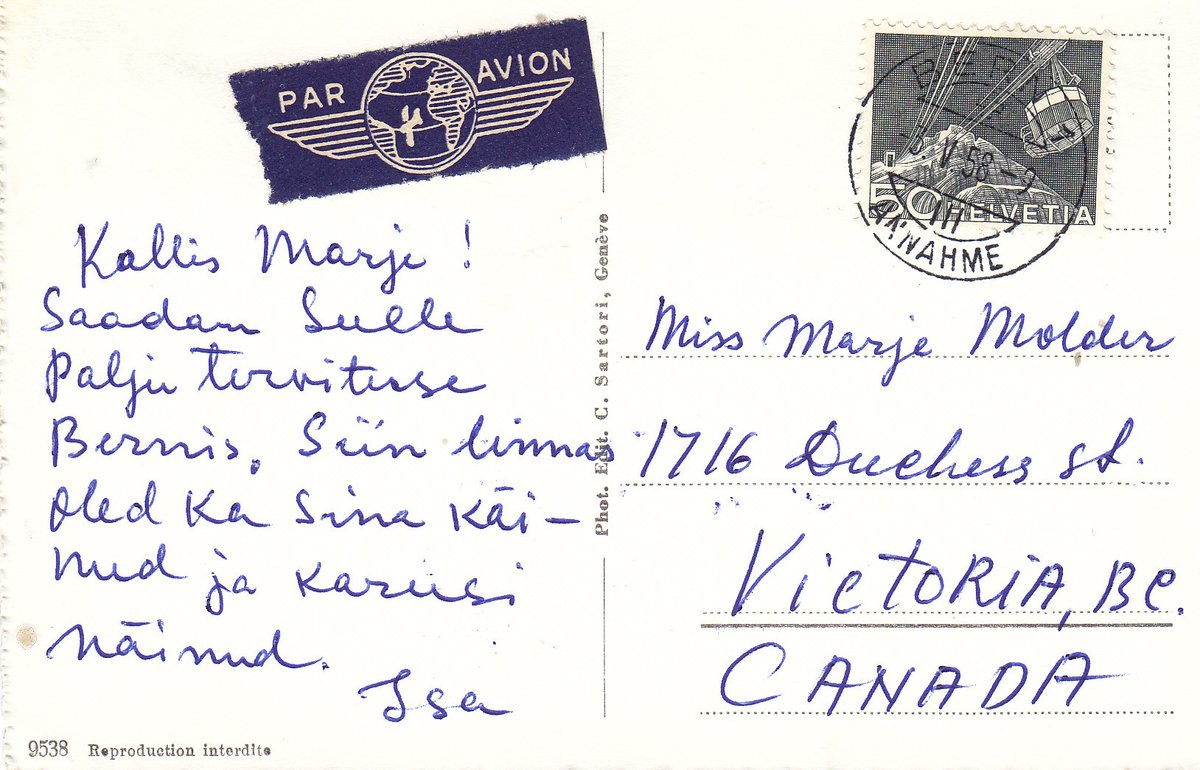 PAR AVION
50 HELVETIA
V. 58 - 9
ANNAHME
Kallis Marje!
Saadan Sulle
Palju tervitusse
Bernis. Siin linnas
oled ka sina käi-
nud ja karusi
näinud.
Isa
Phot. Edit. C. Sartori, Genève
Miss Marje Molder
1716 Duchess st.
VicTORiA, BC.
CANADA
9538 Reproduction interdite